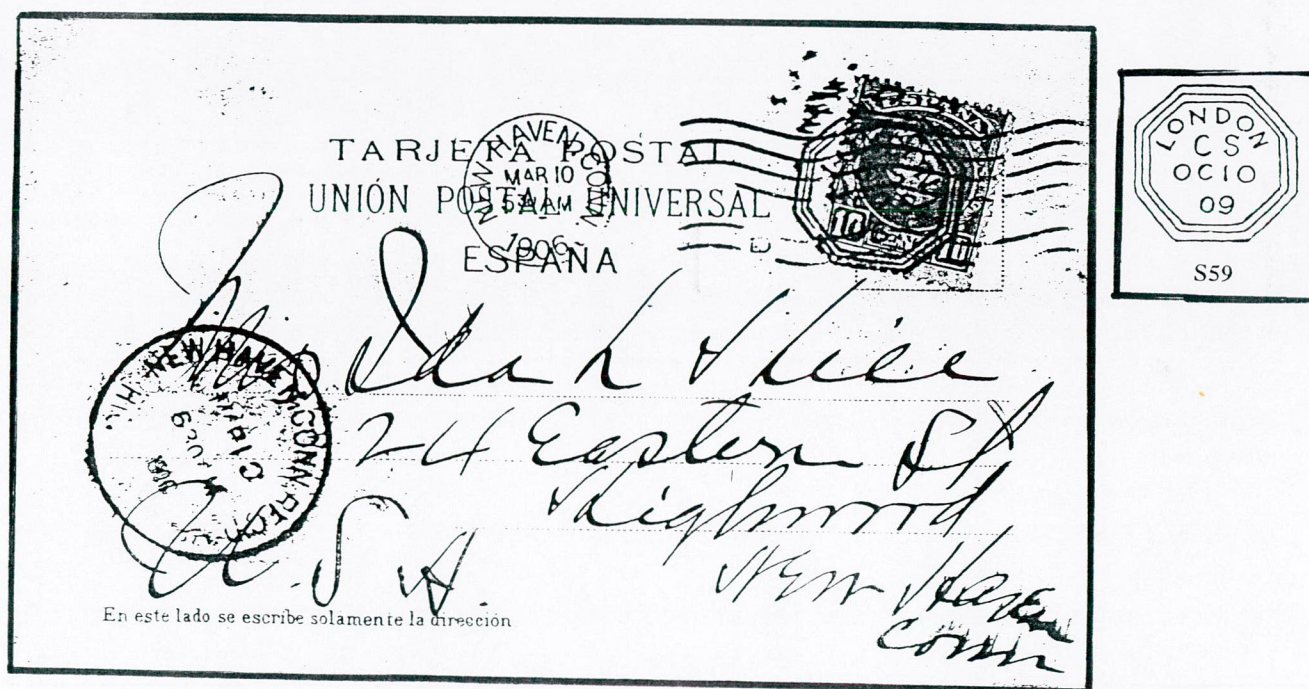 TARJETA POSTAL
UNIÓN POSTAL UNIVERSAL
ESPAÑA
NEW HAVEN, CONN.
MAR 10
AM
1906
ESPAÑA
10
Ida L
24 Eastern St
Highwood
New Haven
Conn
U. S. A.
NEW HAVEN, CONN. REC'D
En este lado se escribe solamente la dirección
LONDON
CS
OC 10
09
S59